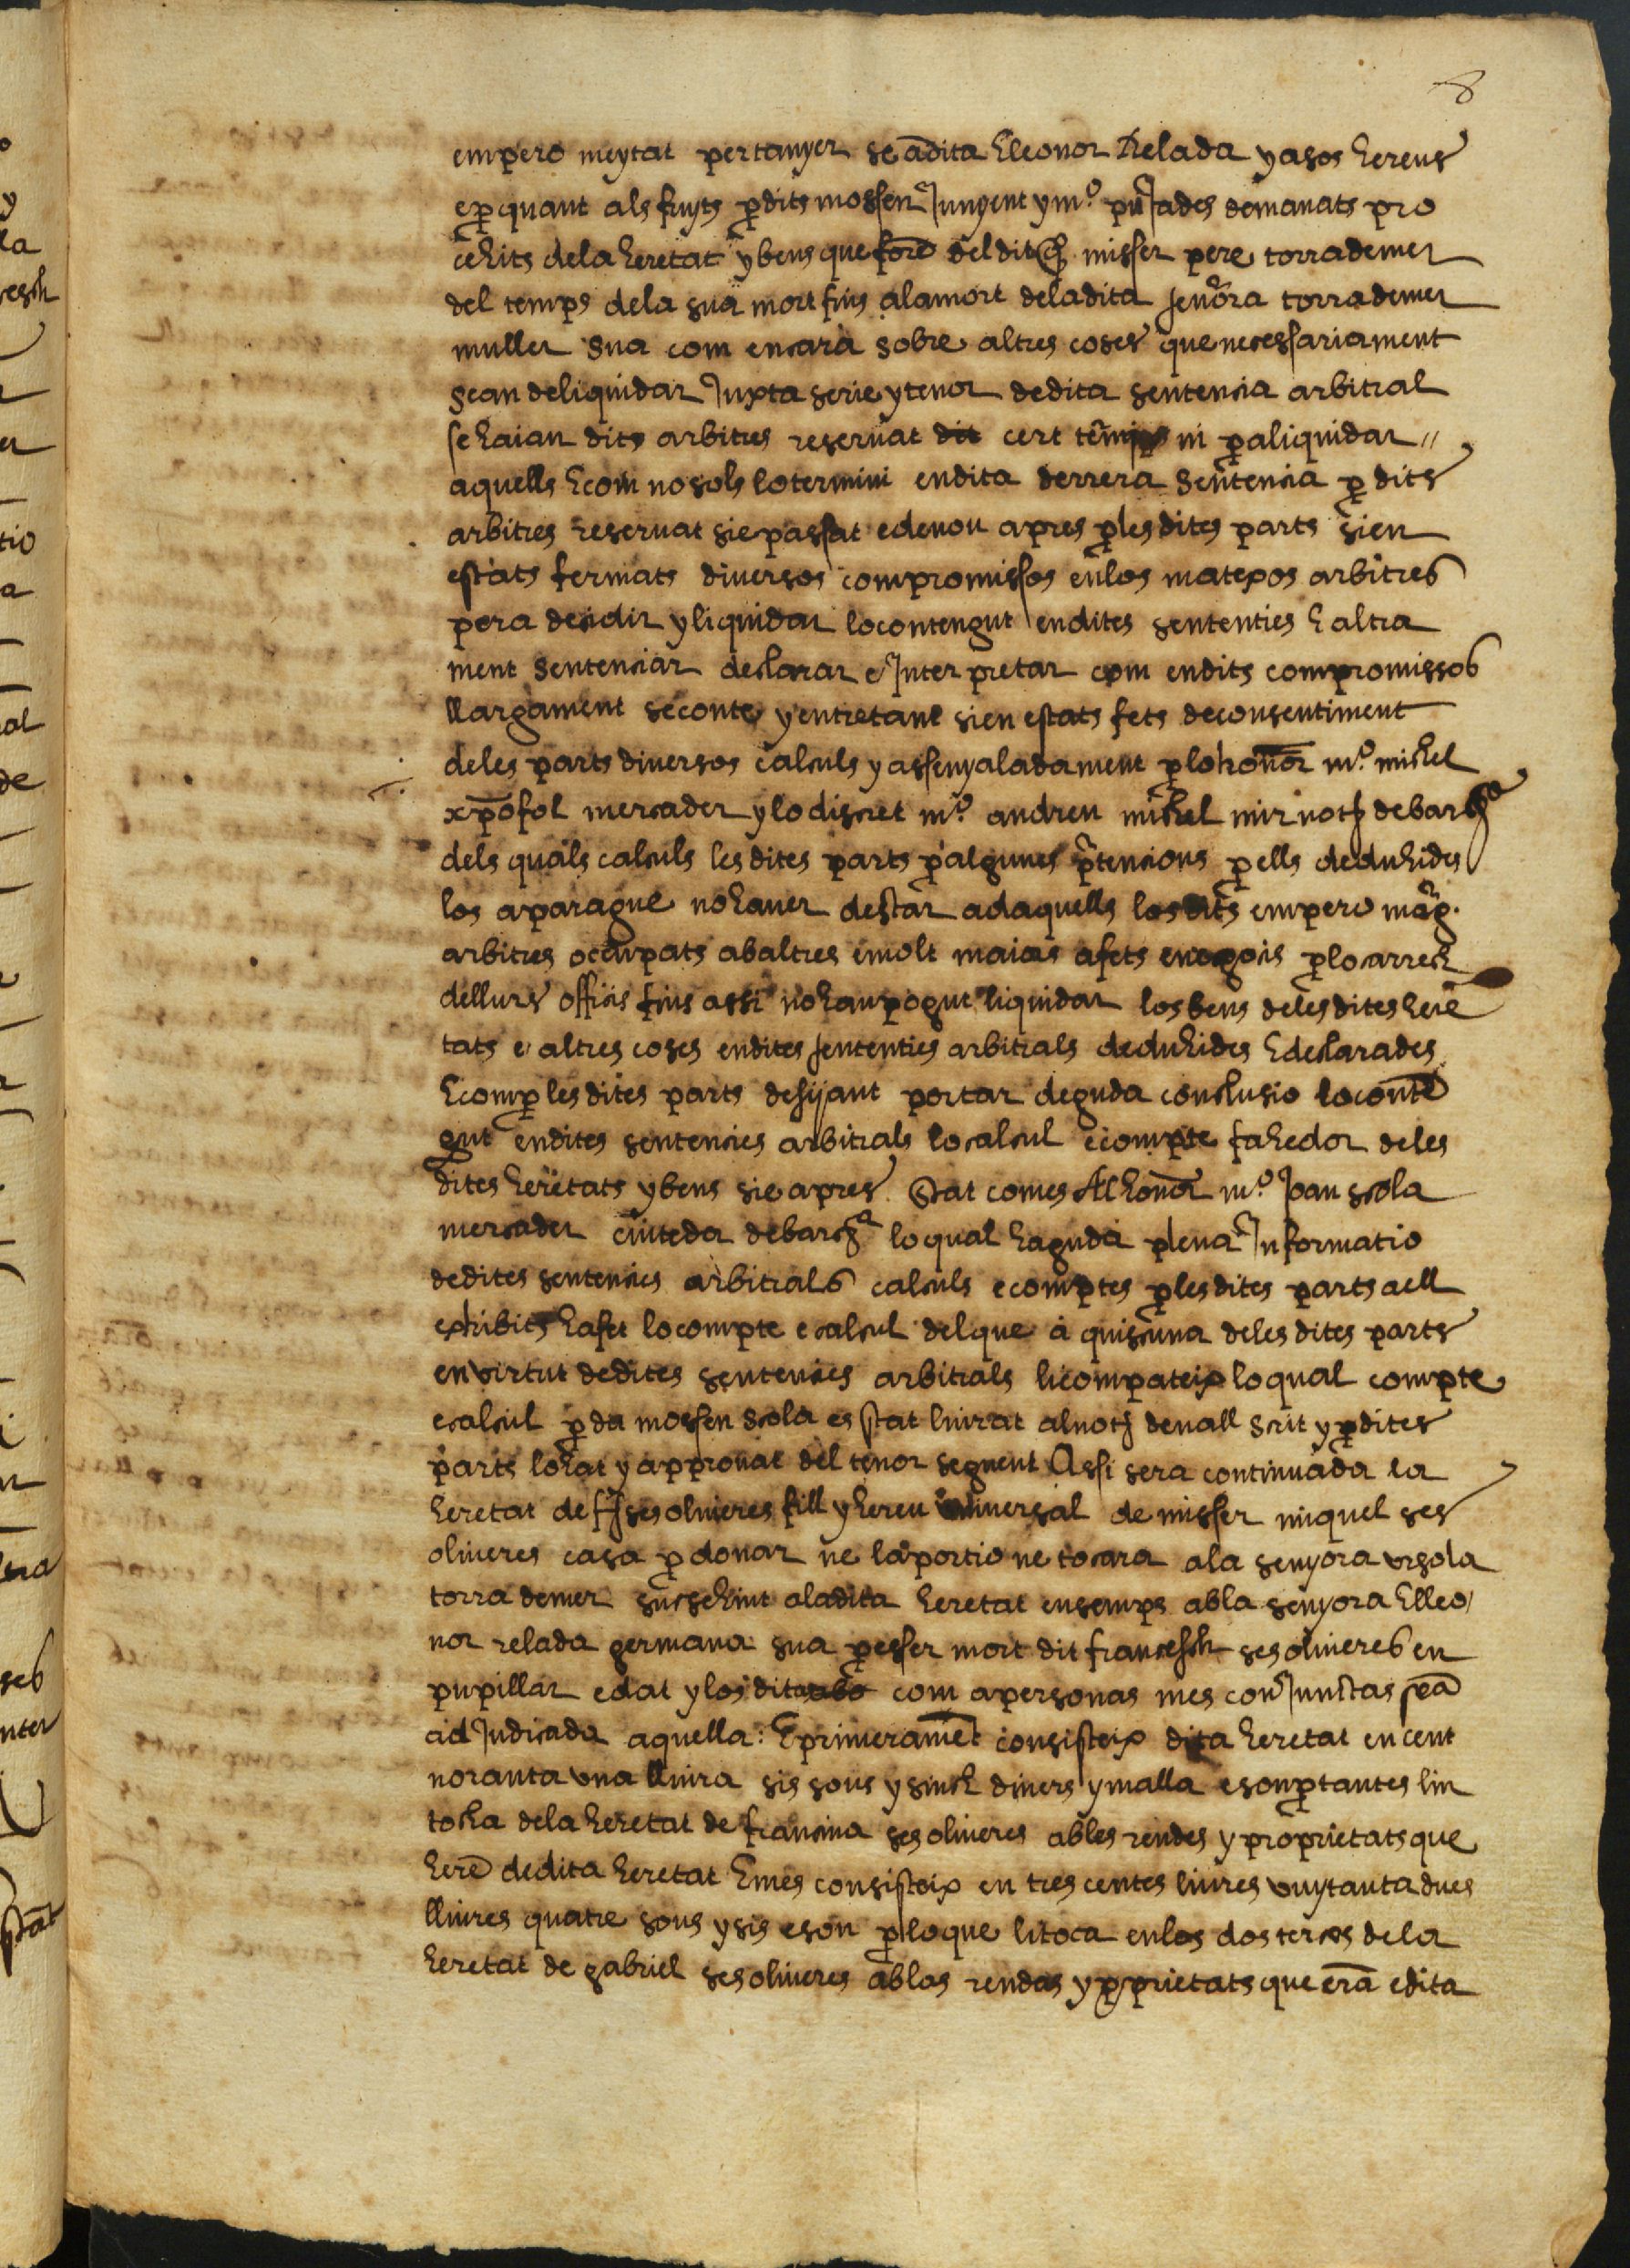 8
empero meytat pertanyer se a dita Eleonor Relada y a sos hereus
e ꝑ quant als fruyts ꝑ dits mossen Junyent y mº puJades demanats pro
cehits de la heretat y bens que forē del dit qº misser pere torrademer
del temps de la sua mort fins a la mort de la dita senōra torrademer
muller sua com encara sobre altres coses que necessariament
se an de liquidar Juxta serie y tenor de dita sentencia arbitral
se haian dits arbitres reseruat dit cert termini ꝑ a liquidar //
aquells E com no sols lo termini en dita derrera sentencia ꝑ dits
arbitres reseruat sie passat e de nou apres ꝑ les dites parts sien
estats fermats diuersos compromissos en los matexos arbitres
pera decidir y liquidar lo contengut en dites sententies E altra
ment sentenciar declarar e Interpretar com en dits compromissos
llargament se conte y entretant sien estats fets de consentiment
de les parts diuersos calculs y assenyaladament ꝑ lo honor mº michel
xp̄ofol mercader y lo discret mº andreu michel mir notj de barª
dels quals calculs les dites parts ꝑ algunes p̄tencions ꝑ ells deduhides
los aparague no hauer destar ad aquells los dits empero mag.
arbitres occupats ab altres e molt maiors afets e negocis ꝑ lo carrech
de llurs officis fins assi no han pogut liquidar los bens de les dites here
tats e altres coses en dites sententies arbitrals deduhides E declarades
E com ꝑ les dites parts desijant portar deguda conclusio lo contē
gut en dites sentencies arbitrals lo calcul e compte fahedor de les
dites heretats y bens sie apres Stat comes Al honor mº Joan scola
mercader ciutedа de barª lo qual haguda plena Informatio
de dites sentencies arbitrals calculs e comptes ꝑ les dites parts a ell
exhibits ha fet lo compte e calcul del que a quiscuna de les dites parts
en virtut de dites sentencies arbitrals li compateix lo qual compte
e calcul ꝑ da mossen scola es stat liurat al notj deuall scrit y ꝑ dites
parts lohat y approuat del tenor seguent Assi sera continuada la
heretat de fj ses oliueres fill y hereu vniuersal de misser miquel ses
oliueres casa ꝑ donar ne la portio ne tocara a la senyora vrsola
torrademer succehint a la dita heretat ensemps ab la senyora Elleo
nor relada germana sua ꝑ esser mort dit francesch ses oliueres en
pupillar edat y los dits com a personas mes conJunctas sea
adJudicada aquella: E primeramēt consisteix dita heretat en cent
noranta vna lliura sis sous y sinch diners y malla e son ꝑ tantes lin
tocha de la heretat de francina ses oliueres ab les rendes y proprietats que
herē de dita heretat E mes consisteix en tres centes liures vuytanta dues
lliures quatre sous y sis e son ꝑ lo que li toca en los dos tercos de la
heretat de gabriel ses oliueres ab las rendas y ꝓprietats que erā e dita